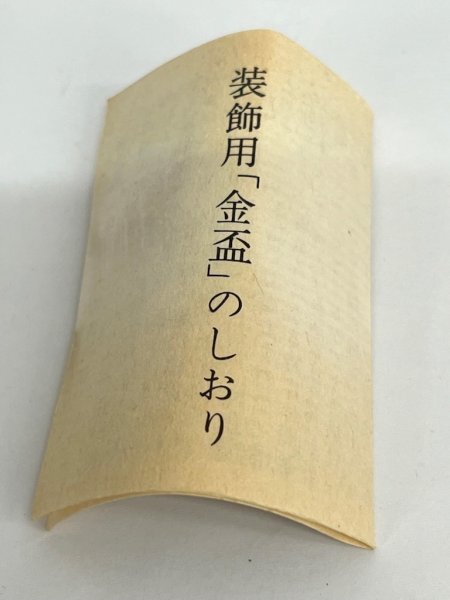 装飾用「金盃」のしおり